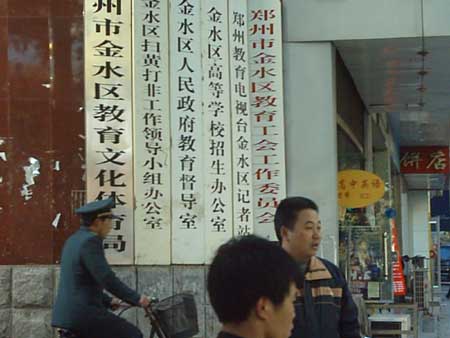 州市金水区教育文化体育局
金水区扫黄打非工作领导小组办公室
金水区人民政府教育督导室
金水区高等学校招生办公室
郑州教育电视台金水区记者站
郑州市金水区教育工会工作委员会
高中英语
饼店